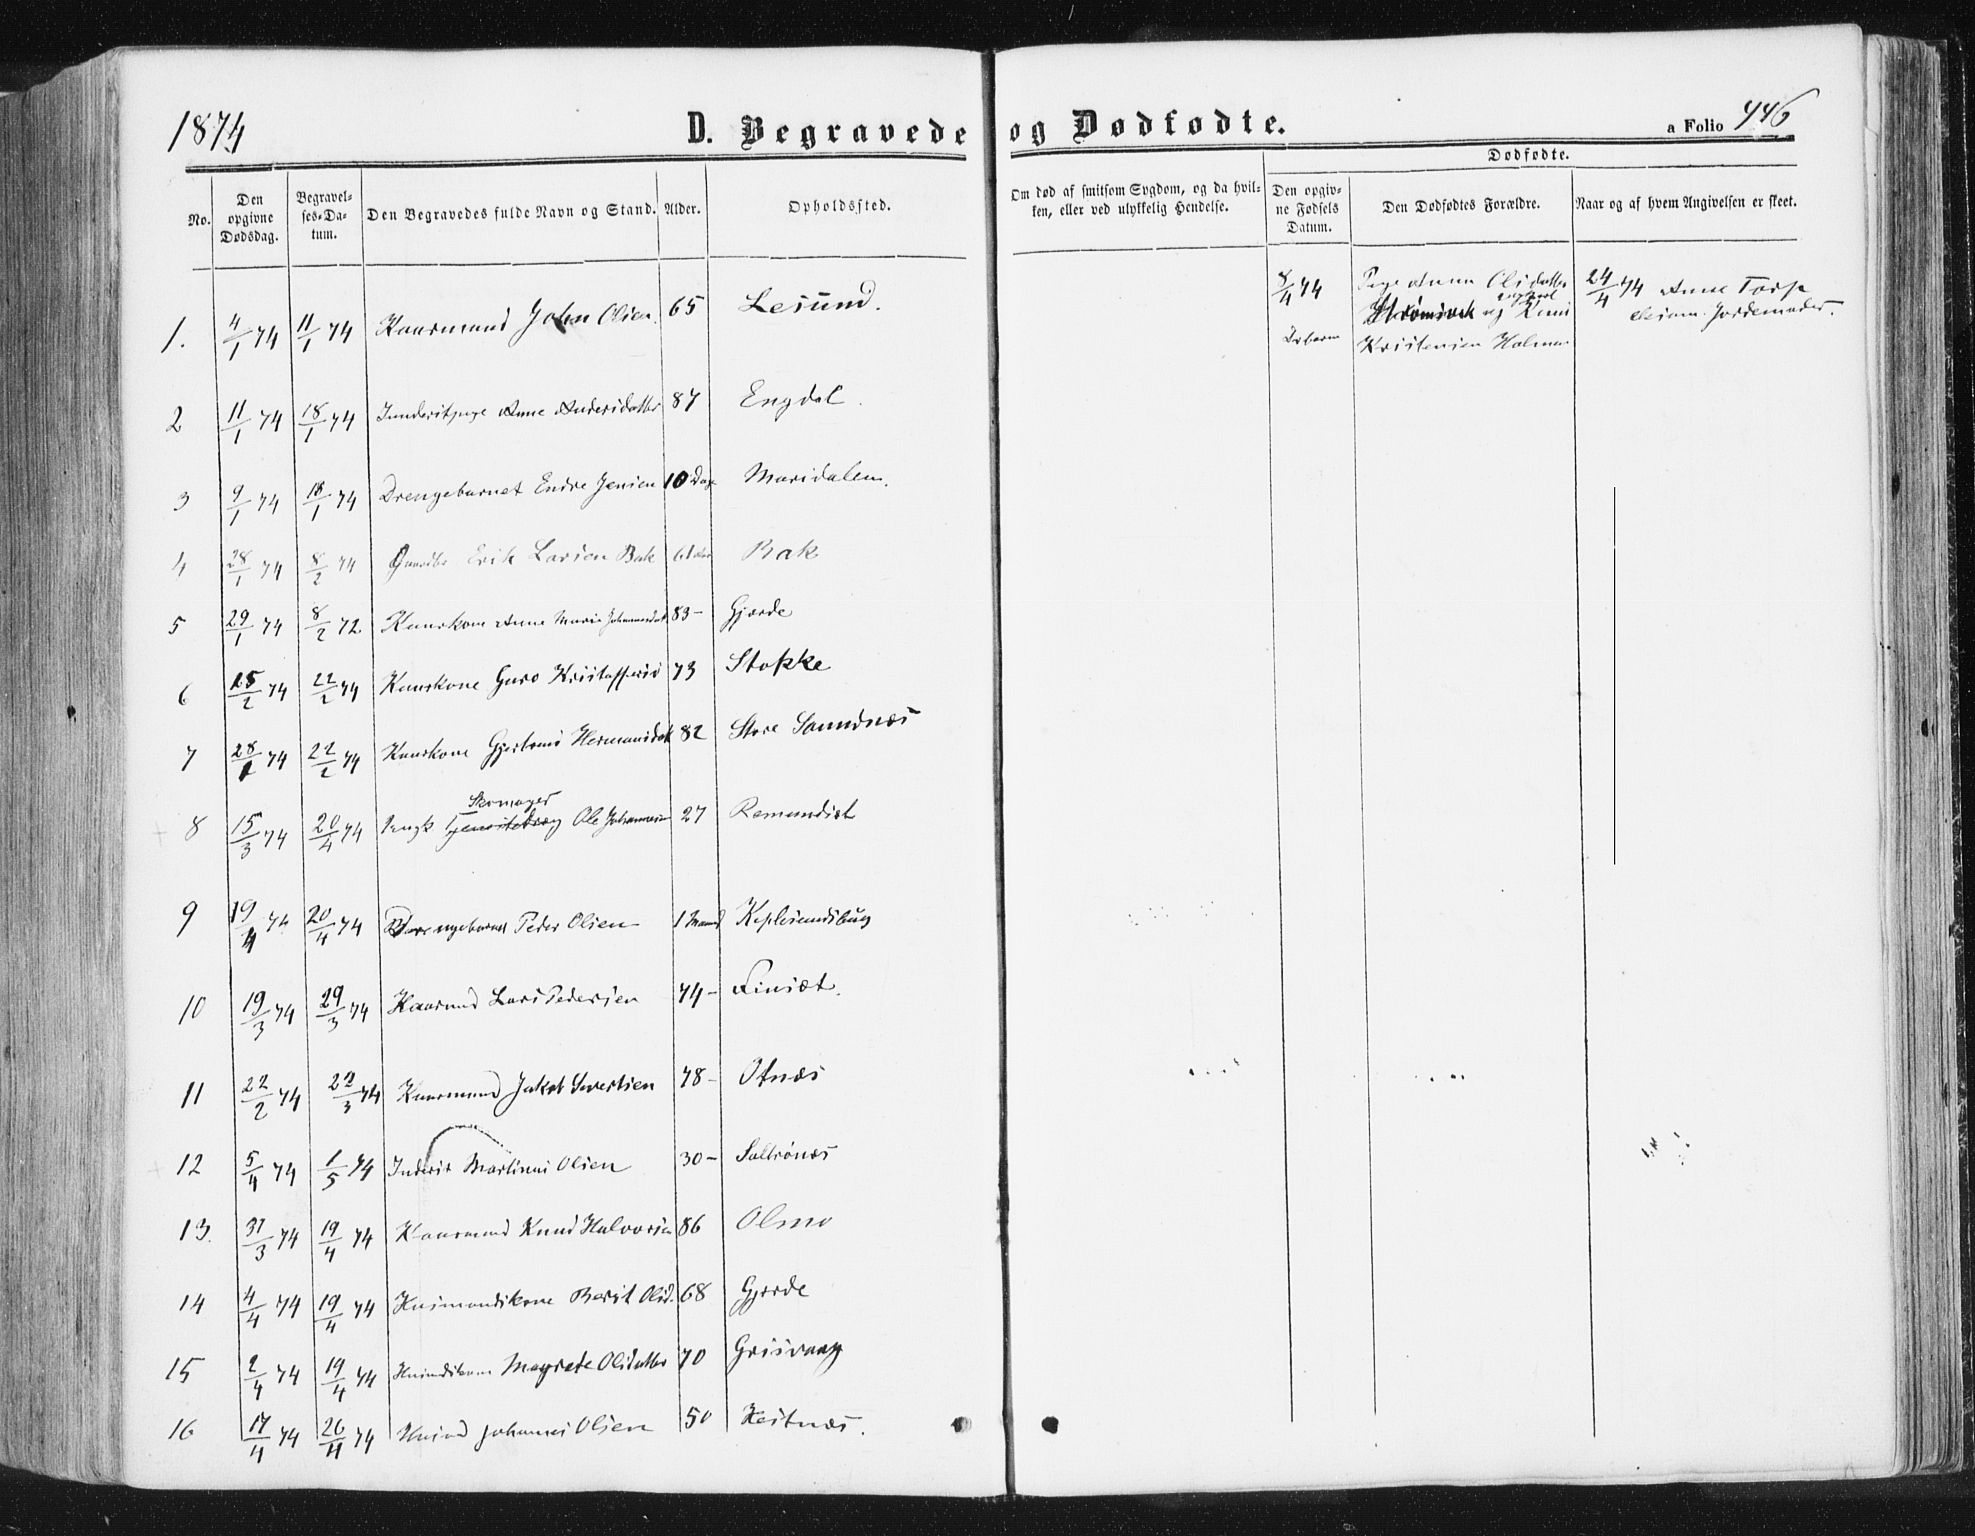 1874 D. Begravede og Dødfødte. a Folio 446
Dødfødte.
No. Den opgivne Dødsdag. Begravelses-Datum. Den Begravedes fulde Navn og Stand. Alder. Opholdssted. Om død af smitsom Sygdom, og da hvilken, eller ved ulykkelig Hendelse. Den opgivne Fødsels Datum. Den Dødfødtes Forældre. Naar og af hvem Angivelsen er skeet.
1. 4/1 74 11/1 74 Kaarmand John Olsen. 65 Lesund.
8/4 74 Pige Anna Olsdatter 24/4 74 Anne Torp
og Knud Jordemoder.
Kristensen Holmen
2 11/1 74 18/1 74 Anne Andersdatter 87 Engdal.
3 9/1 74 18/1 74 Drengebarnet Endre Jensen 10 Dage Maridalen.
4 28/1 74 8/2 74 Gaardbr Erik Larsen Bak 61 Bak
5 29/1 74 8/2 72 Kaarkone Anne Marie Johannesdat 83- Gjærde
6 15/2 74 22/2 74 Kaarkone Guro Kristoffersd 73 Stokke
7 28/1 74 22/2 74 Kaarkone Gjertrud Hermansdat 82 Store Sandnæs
Skomager
8 15/3 74 20/4 74 Ungk Ole Johannesen 27 Romundset
9 19/4 74 20/4 74 Drengebarnet Peder Olsen 1 Maaned
10 19/3 74 29/3 74 Kaarmd Lars Pedersen 74- Finset.
11 22/2 74 29/3 74 Kaarmand Jakob Sivertsen 78- Otnæs
12 5/4 74 1/5 74 Inderst Martinus Olsen 30- Saltrønæs
13. 31/3 74 19/4 74 Kaarmand Knud Halvorsen 86 Olmo
14 4/4 74 19/4 74 Husmandskone Berit Olsd. 68 Gjærde
15 2/4 74 19/4 74 Magrete Olsdatter 70 Grisvaag
16 17/4 74 26/4 74 Husmd Johannes Olsen 50 Kestnæs.